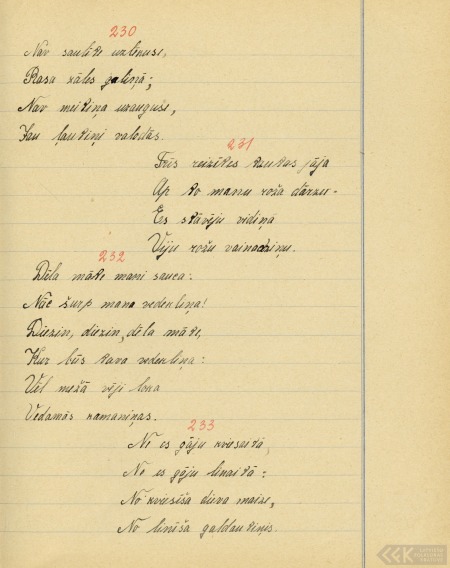 230
Nav saulīte uzlēkuse,
Rasa zāles galiņā;
Nav meitiņa uzauguse,
Jau ļautiņi valodās.
231
Trīs reizītes tautas jāja
Ap to manu rožu dārzu.
Es stāvēju vidiņā
Viju rožu vainadziņu.
232
Dēla māte mani sauca:
Nāc šurp mana vedekliņa!
Diezin, diezin, dēla māte,
Kur būs tava vedekliņa:
Vēl mežā vēji loka
Vedamās kamaniņas.
233
Ne es gāju kviesītā,
Ne es gāju linaitā:
No kviesīša dieva maize,
No linīša galdautiņis.